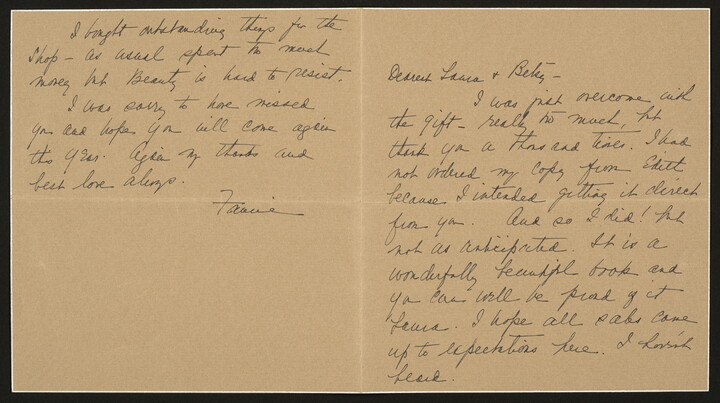 Dearest Laura & Betsy –
I was just overcome with
the gift – really too much, but
thank you a thousand times. I had
not ordered my copy from Edith
because I intended getting it direct
from you. And so I did! but
not as anticipated. It is a
wonderfully beautiful book and
you can well be proud of it
Laura. I hope all sales came
up to expectations here. I haven't
heard.
I bought outstanding things for the
Shop – as usual spent too much
money but Beauty is hard to resist.
I was sorry to have missed
you and hope you will come again
this year. Again my thanks and
best love always.
Fannie